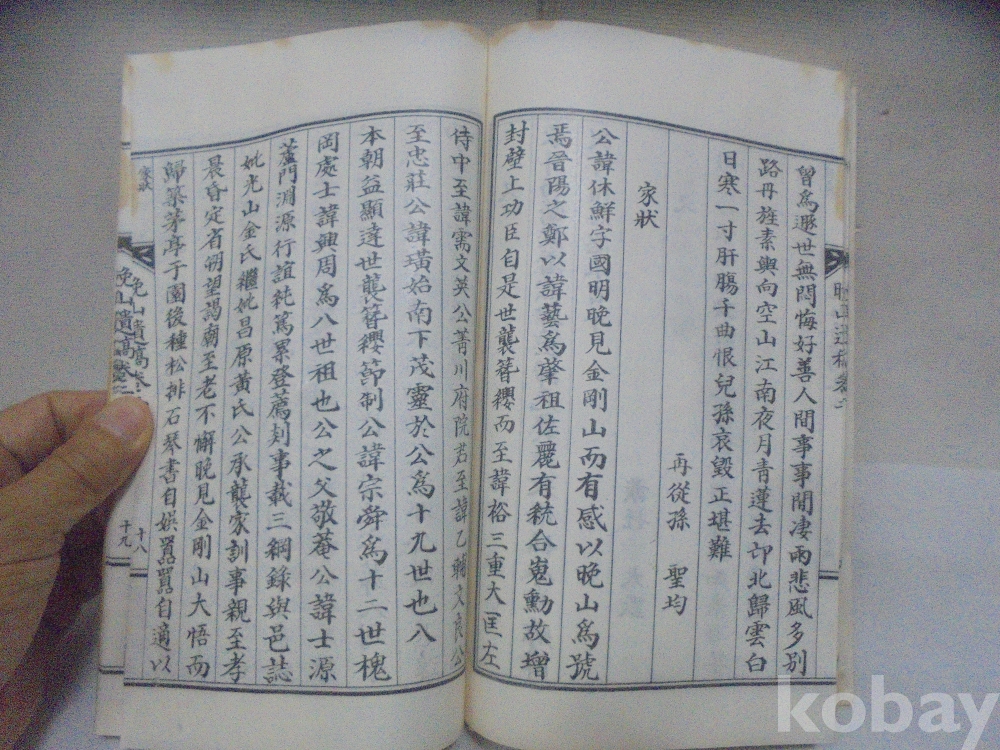 曾爲遯世無悶悔好善人間事事閒淒雨悲風多別
路丹旌素輿向空山江南夜月青蓮去卲北歸雲白
日寒一寸肝膓千曲恨兒孫哀毀正堪難
再從孫 聖均
家狀
公諱休鮮字國明晩見金剛山而有感以晩山爲號
焉晉陽之鄭以諱藝爲肇祖佐麗有統合嵬勳故增
封壁上功臣自是世襲簪纓而至諱裕三重大匡左
侍中至諱需文英公菁川府院君至諱乙輔文良公
至忠莊公諱璜始南下茂靈於公爲十九世也八
本朝益顯達世襲簪纓節制公諱宗舜爲十二世槐
岡處士諱興周爲八世祖也公之父敬菴公諱士源
蘆門淵源行誼純篤累登薦剡事載三綱錄與邑誌
妣光山金氏繼妣昌原黃氏公承襲家訓事親至孝
晨昏定省朔望謁廟至老不懈晩見金剛山大悟而
歸築茅亭于園後種松排石琴書自娛囂囂自適以
家狀
晩山遺稿卷
十八
晩山遺稿卷二
十九
kobay